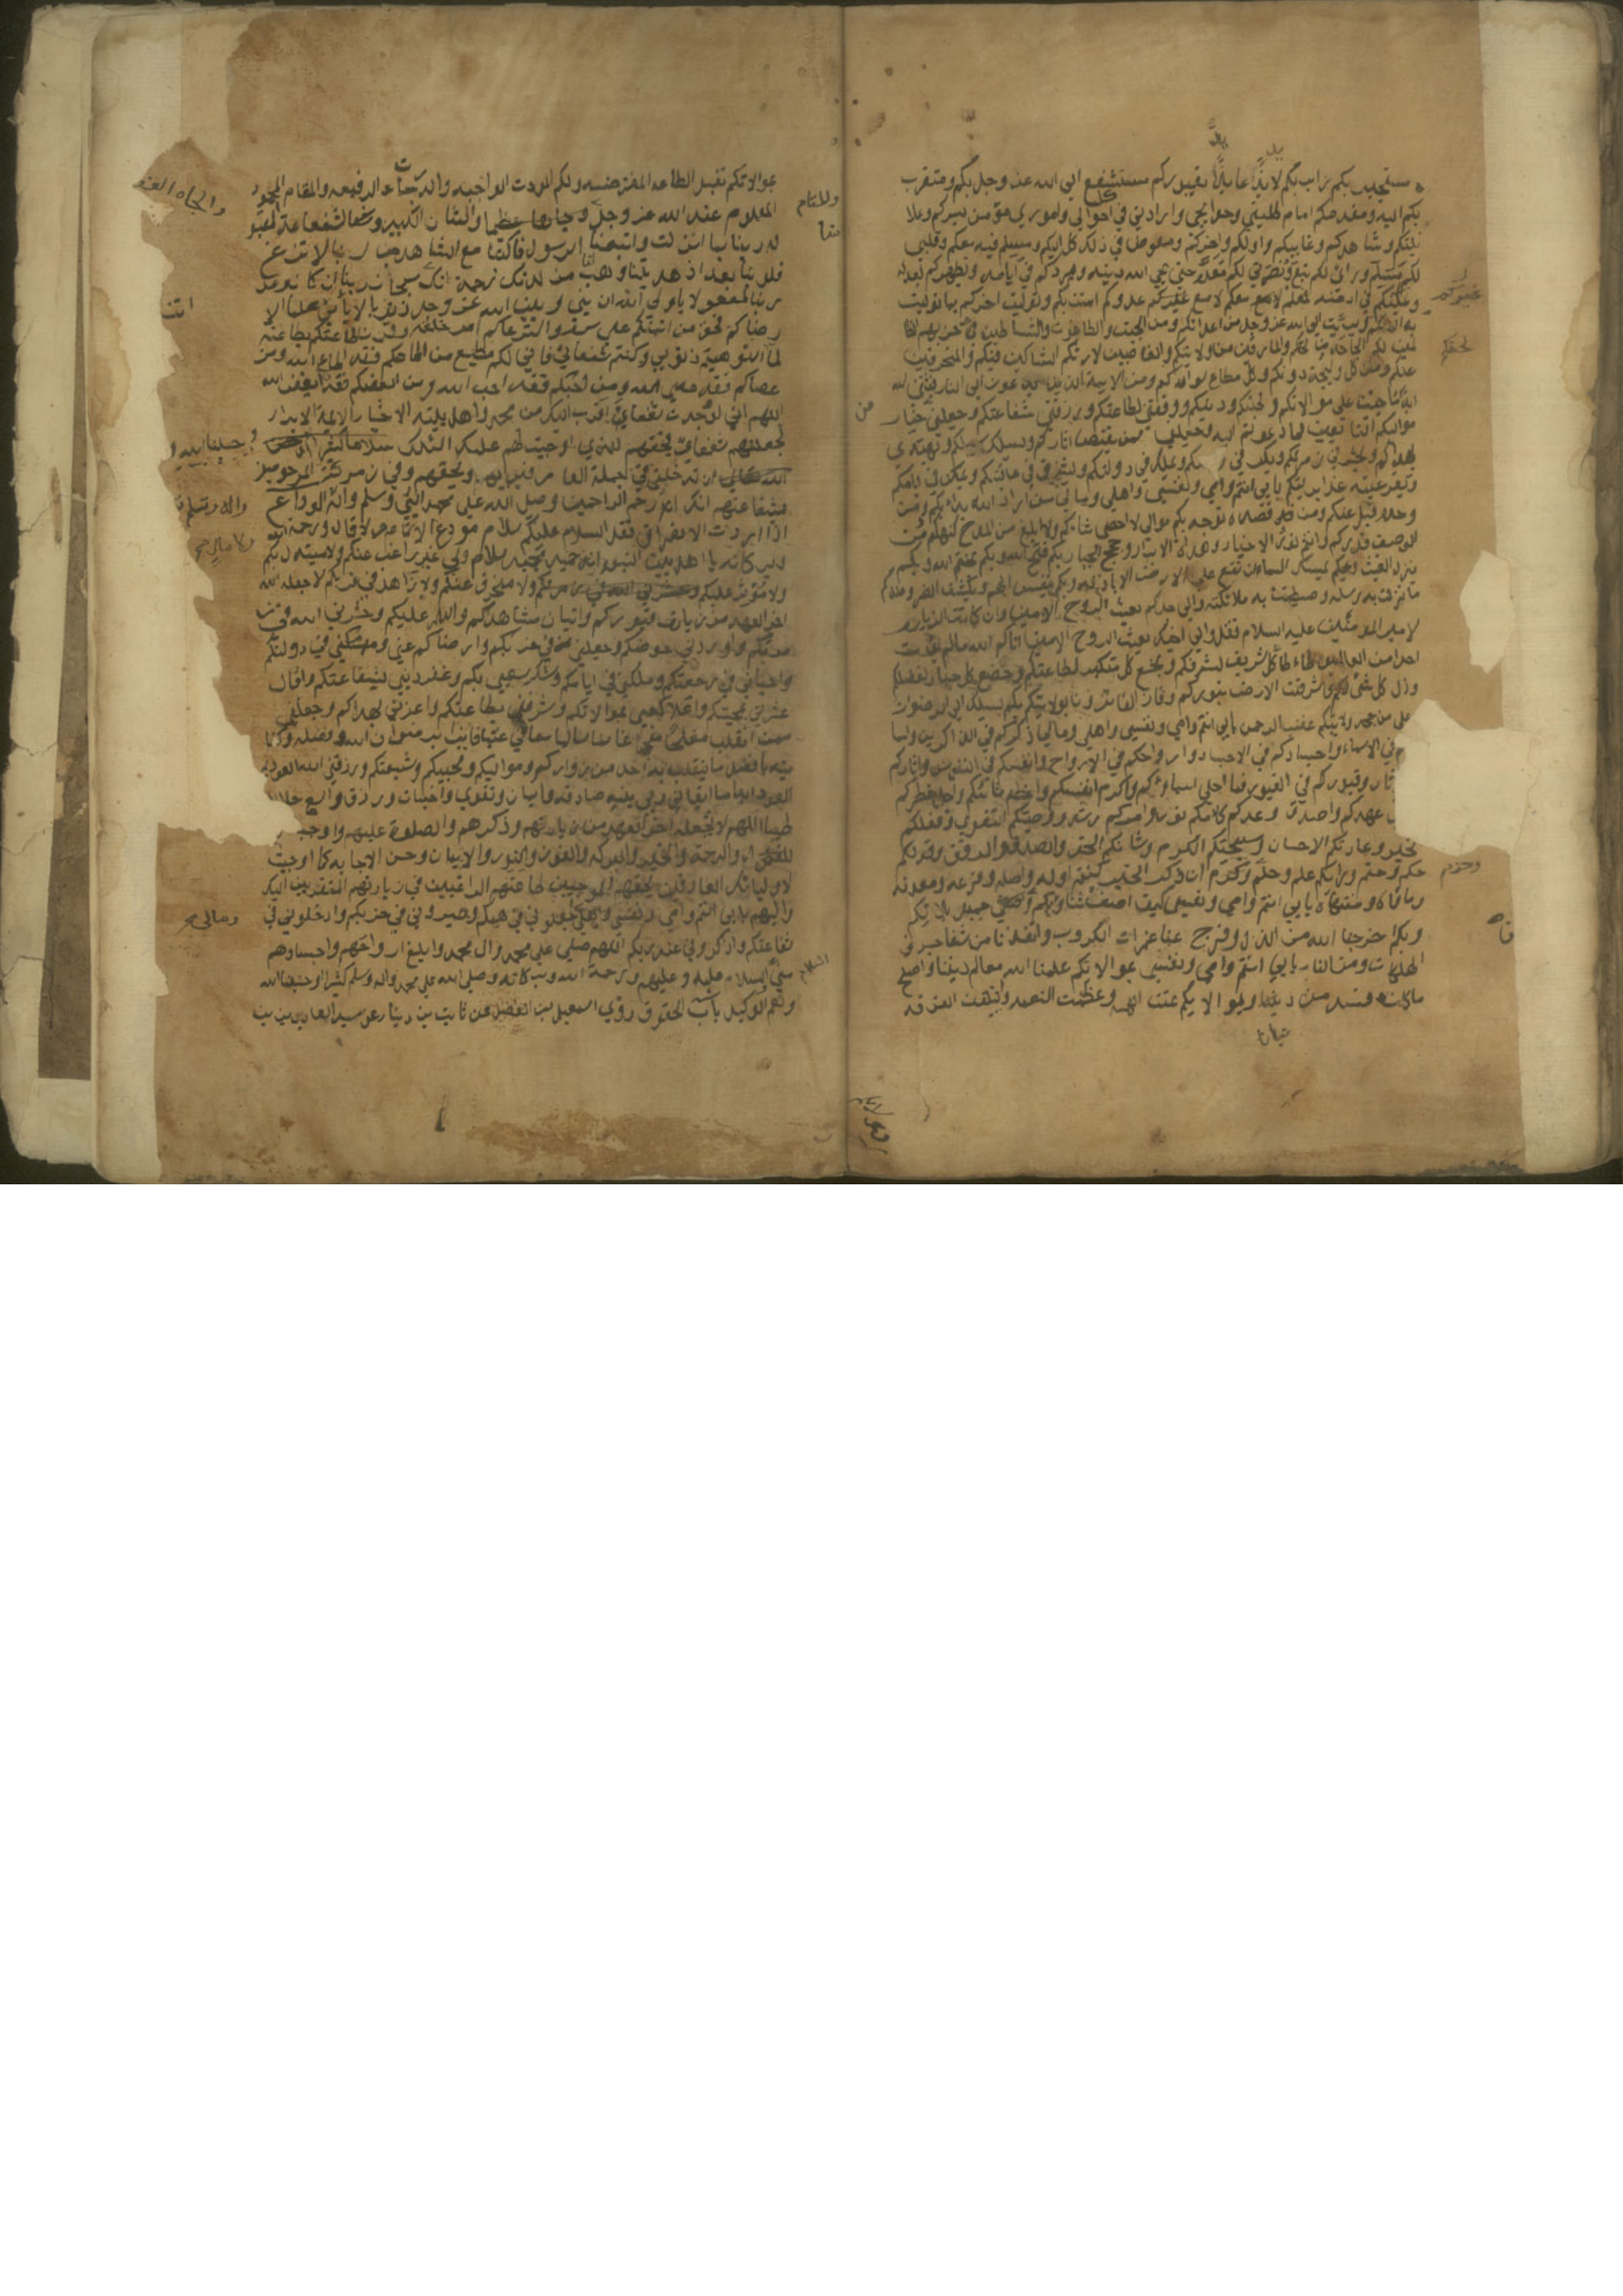 مستجير بكم زاير لكم لايذ عايذ بقبوركم مستشفع الى الله عز وجل بكم ومتقرب
بكم اليه ومقدمكم امام طلبتي وحوايجي وارادتي في كل احوالي واموري مؤمن بسركم وعلا
نيتكم وشاهدكم وغايبكم واولكم واخركم ومفوض في ذلك كله اليكم ومسلم فيه معكم وقلبي
لكم مسلم ورائي لكم تبع ونصرتي لكم معدة حتى يحيي الله دينه ويردكم في ايامه ويظهركم لعدله
ويمكنكم في ارضه فمعكم معكم لا مع عدوكم امنت بكم وتوليت اخركم بما توليت
به اولكم وبرئت الى الله عز وجل من اعدائكم ومن الجبت والطاغوت والشياطين وحزبهم الظا
لمين لكم الجاحدين لحقكم والمارقين من ولايتكم والغاصبين لارثكم الشاكين فيكم والمنحرفين
عنكم ومن كل وليجة دونكم وكل مطاع سواكم ومن الائمة الذين يدعون الى النار فثبتني الله
ابدا ما حييت على موالاتكم ومحبتكم ودينكم ووفقني لطاعتكم ورزقني شفاعتكم وجعلني من خيار
مواليكم التابعين لما دعوتم اليه وجعلني ممن يقتص اثاركم ويسلك سبيلكم ويهتدي
بهداكم ويحشر في زمرتكم ويكر في رجعتكم ويملك في دولتكم ويشرف في عافيتكم ويمكن في ايامكم
وتقر عينه غدا برؤيتكم بابي انتم وامي ونفسي واهلي ومالي من اراد الله بدأ بكم ومن
وحده قبل عنكم ومن قصده توجه بكم موالي لا احصي ثناءكم ولا ابلغ من المدح كنهكم ومن
الوصف قدركم وانتم نور الاخيار وهداة الابرار وحجج الجبار بكم فتح الله وبكم يختم الله وبكم
ينزل الغيث وبكم يمسك السماء ان تقع على الارض الا باذنه وبكم ينفس الهم ويكشف الضر وعندكم
ما نزلت به رسله وهبطت به ملائكته والى جدكم بعث الروح الامين وان كانت الزيارة
لامير المؤمنين عليه السلام فقل والى اخيك بعث الروح الامين اتاكم الله ما لم يؤت
احدا من العالمين طاطا كل شريف لشرفكم وبخع كل متكبر لطاعتكم وخضع كل جبار لفضلكم
وذل كل شئ لكم واشرقت الارض بنوركم وفاز الفائزون بولايتكم بكم يسلك الى الرضوان
وعلى من جحد ولايتكم غضب الرحمن بابي انتم وامي ونفسي واهلي ومالي ذكركم في الذاكرين واسما
في الاسماء واجسادكم في الاجساد وارواحكم في الارواح وانفسكم في النفوس واثاركم
ثار وقبوركم في القبور فما احلى اسماءكم واكرم انفسكم واعظم شانكم واجل خطركم
عهدكم واصدق وعدكم كلامكم نور وامركم رشد ووصيتكم التقوى وفعلكم
الخير وعادتكم الاحسان وسجيتكم الكرم وشانكم الحق والصدق والرفق وقولكم
حكم وحتم ورايكم علم وحلم وكرم ان ذكر الخير كنتم اوله واصله وفرعه ومعدنه
وماواه ومنتهاه بابي انتم وامي ونفسي كيف اصف ثناءكم واحصي جميل بلائكم
وبكم اخرجنا الله من الذل وفرج عنا غمرات الكروب وانقذنا من شفا جرف
الهلكات ومن النار بابي انتم وامي ونفسي بموالاتكم علمنا الله معالم ديننا واصلح
ما كان فسد من دنيانا وبموالاتكم تمت الكلمة وعظمت النعمة وائتلفت الفرقة
غيركم
لحقكم
من
وحزم
بموالاتكم تقبل الطاعة المفترضة ولكم المودة الواجبة والدرجات الرفيعة والمقام المحمود
المعلوم عند الله عز وجل والشان الكبير والشفاعة المقبو
لة ربنا امنا بما انزلت واتبعنا الرسول فاكتبنا مع الشاهدين ربنا لا تزغ
قلوبنا بعد اذ هديتنا وهب لنا من لدنك رحمة انك سبحان ربنا ان كان وعد
ربنا لمفعولا يا ولي الله ان بيني وبين الله عز وجل ذنوبا لا ياتي عليها الا
رضاكم فبحق من ائتمنكم على سره واسترعاكم امر خلقه وقرن طاعتكم بطاعته
لما استوهبتم ذنوبي وكنتم شفعائي فاني لكم مطيع من اطاعكم فقد اطاع الله ومن
عصاكم فقد عصى الله ومن احبكم فقد احب الله ومن ابغضكم فقد ابغض الله
اللهم اني لو وجدت شفعاء اقرب اليك من محمد واهل بيته الاخيار الائمة الابرار
لجعلتهم شفعائي فبحقهم الذي اوجبت لهم عليك اسئلك
ان تدخلني في جملة العارفين بهم وبحقهم وفي زمرة المرحومين
بشفاعتهم انك ارحم الراحمين وصلى الله على محمد النبي وسلم واله الوداع
اذا اردت الانصراف فقل السلام عليكم سلام مودع لا قال ورحمة الله
وبركاته يا اهل بيت النبوة انه حميد مجيد سلام ولي غير راغب عنكم ولا مستبدل بكم
ولا مؤثر عليكم ولا منحرف عنكم ولا زاهد في قربكم لا جعله الله
اخر العهد من زيارة قبوركم واتيان مشاهدكم والسلام عليكم وحشرني الله في
زمرتكم واوردني حوضكم وجعلني في حزبكم وارضاكم عني ومكنني في دولتكم
واحياني في رجعتكم وملكني في ايامكم وشكر سعيي بكم وغفر ذنبي بشفاعتكم واقال
عثرتي بمحبتكم واعلا كعبي بموالاتكم وشرفني بطاعتكم واعزني بهداكم وجعلني
ممن انقلب مفلحا منجحا غانما سالما معافا غنيا فايزا برضوان الله وفضله وكفا
يته بافضل ما ينقلب به احد من زواركم ومواليكم ومحبيكم وشيعتكم ورزقني الله العود ثم
العود ابدا ما ابقاني ربي بنية صادقة وايمان وتقوى واخبات ورزق واسع حلال
طيب اللهم لا تجعله اخر العهد من زيارتهم وذكرهم والصلوة عليهم واوجب
والرحمة والخير والبركة والفوز والنور والايمان وحسن الاجابة كما اوجبت
لاوليائك العارفين بحقهم الموجبين طاعتهم الراغبين في زيارتهم المتقربين اليك
واليهم بابي انتم وامي ونفسي واهلي اجعلوني في همكم وصيروني في حزبكم وادخلوني في
شفاعتكم واذكروني عند ربكم اللهم صلى على محمد وال محمد وابلغ ارواحهم واجسادهم
مني السلام عليه وعليهم ورحمة الله وبركاته وصلى الله على محمد واله وسلم كثيرا وحسبنا الله
ونعم الوكيل باب الحقوق روى اسمعيل بن الفضل عن ثابت بن دينار عن سيد العابدين بن
والمقام
انت
ومالي
السلام